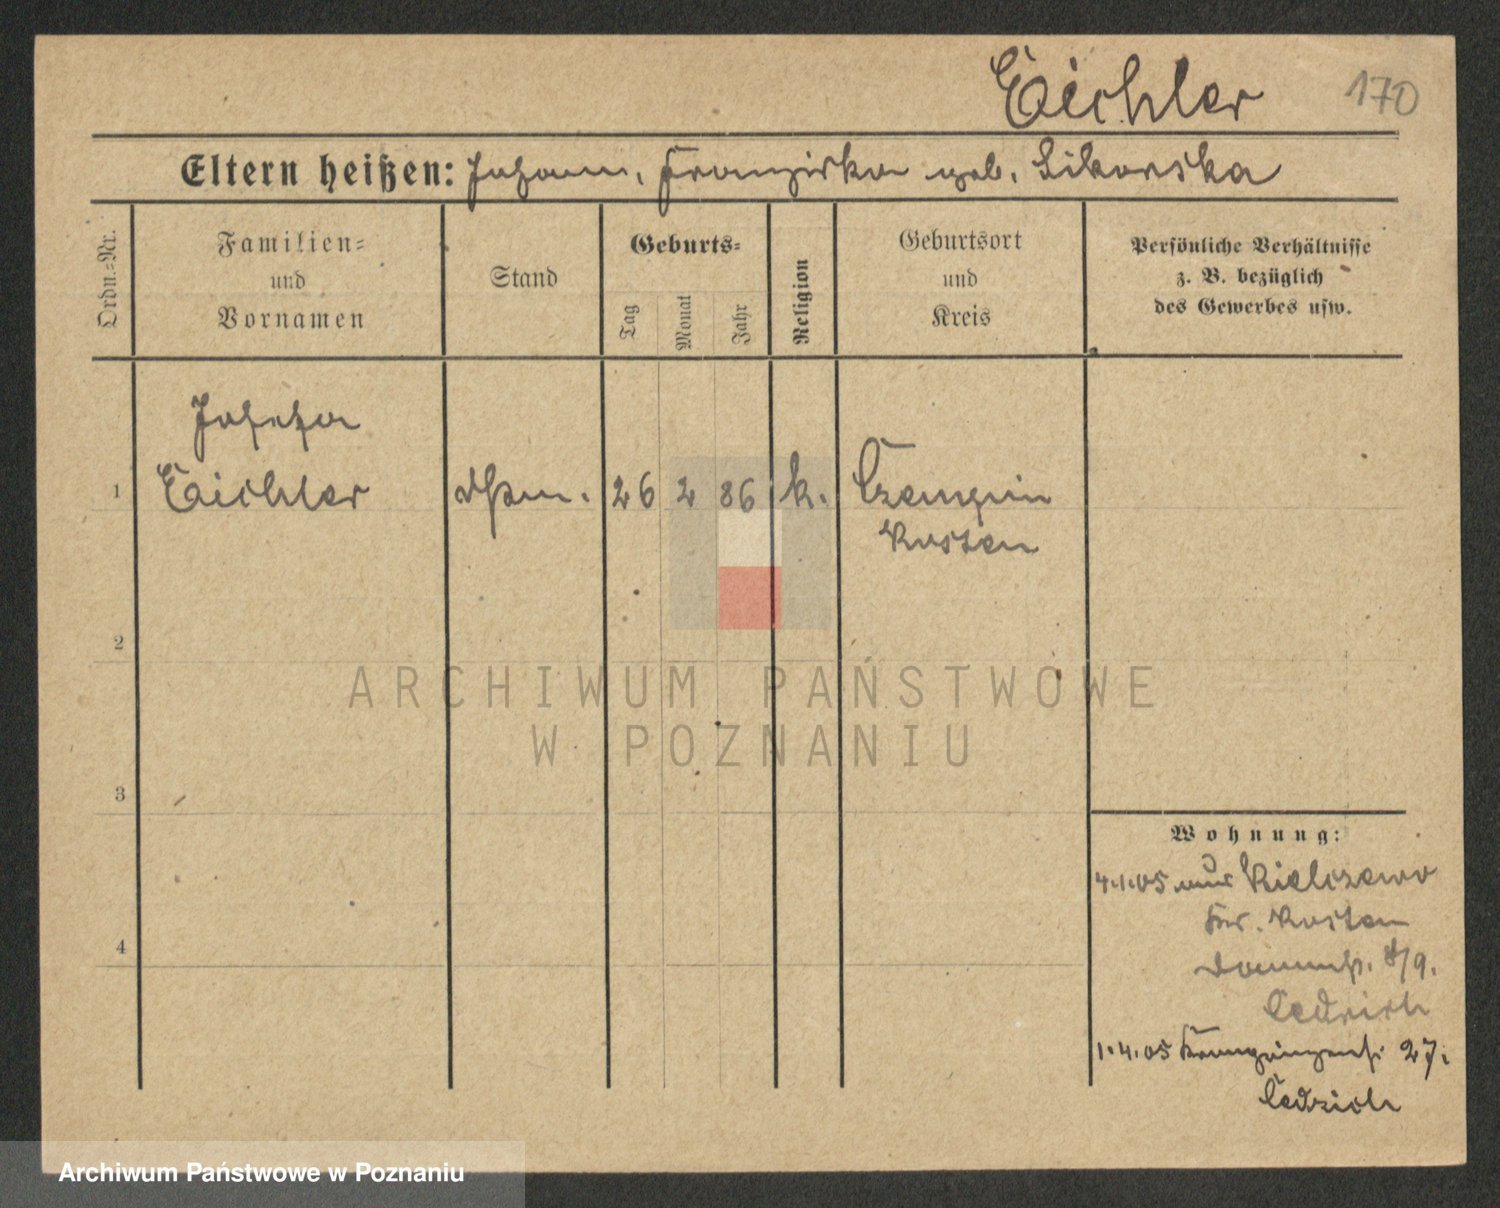 Eichler 170
Eltern heißen: Johann, Franziska geb. Sikorska
Ordn.-Nr.
Familien-
und
Vornamen
Stand
Geburts-
Tag
Monat
Jahr
Religion
Geburtsort
und
Kreis
Persönliche Verhältnisse
z. B. bezüglich
des Gewerbes usw.
Josefa
1 Eichler 26 2 86 k. Czempin
Kosten
2
ARCHIWUM PAŃSTWOWE
W POZNANIU
3
4
Wohnung:
4.1.05 aus Kielczewo
Kr. Kosten
8/9.
Cedzich
1.4.05 Kronprinzenst. 27.
Cedzich
Archiwum Państwowe w Poznaniu